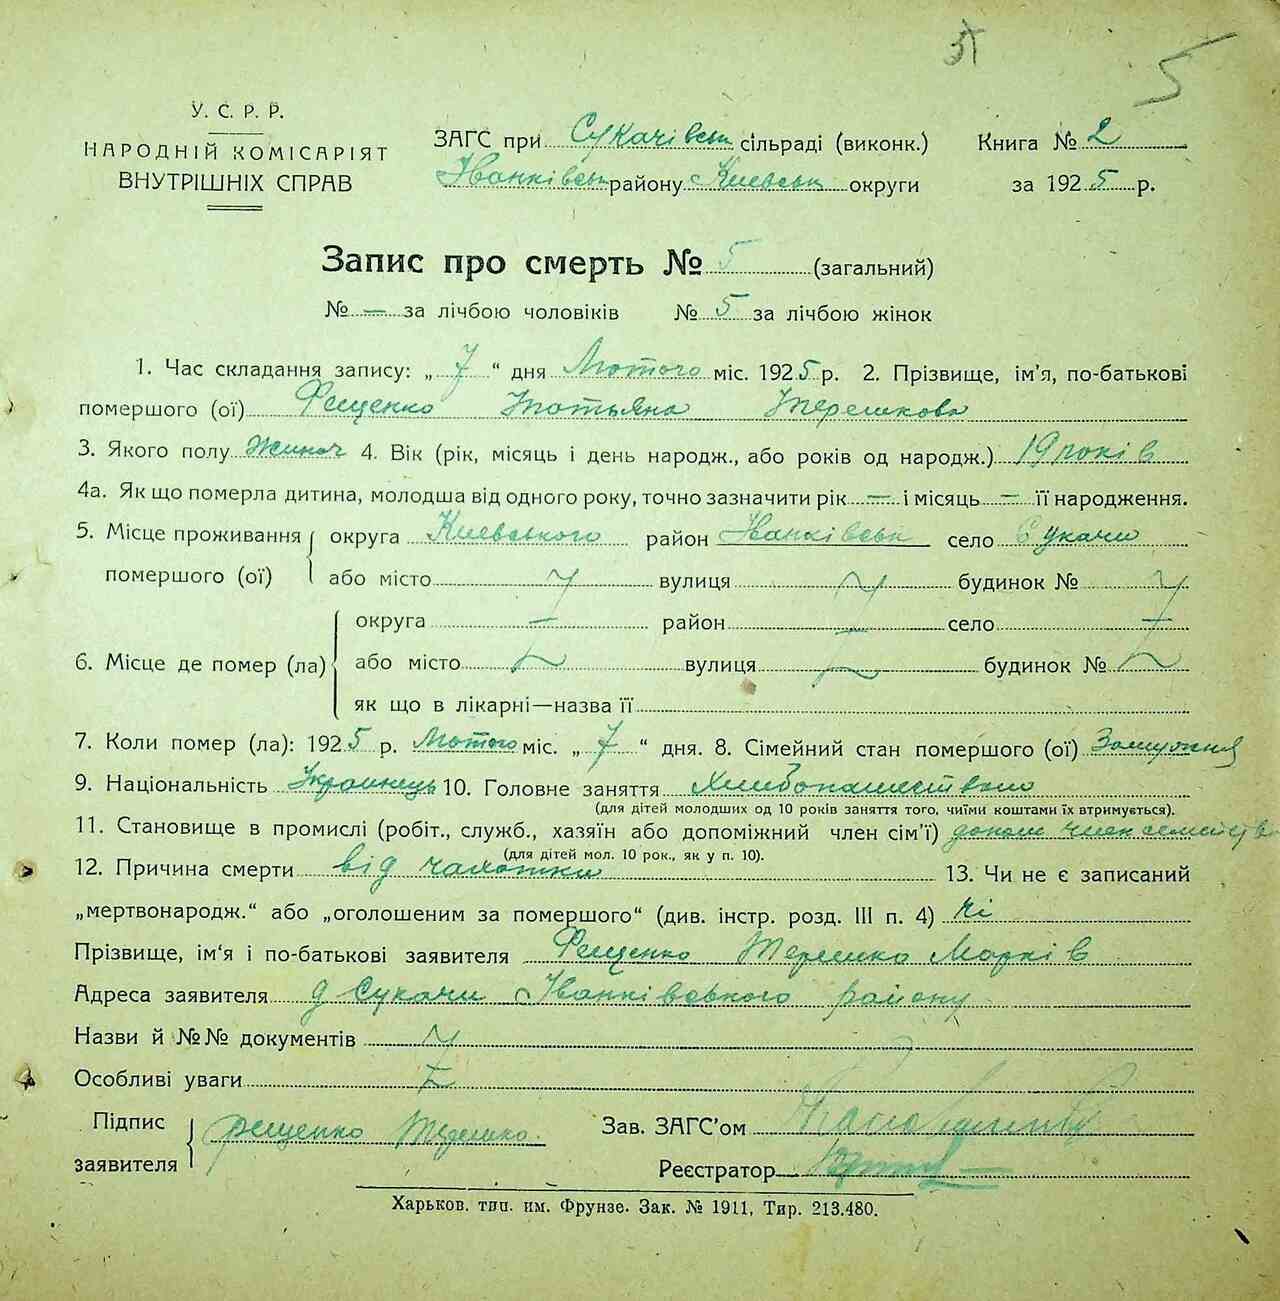 5
У. С. Р. Р.
НАРОДНІЙ КОМІСАРІЯТ
ВНУТРІШНІХ СПРАВ
ЗАГС при Сукачівськ сільраді (виконк.) Книга № 2
Іванківськ району Киевськ округи за 1925 р.
Запис про смерть № 5 (загальний)
№ — за лічбою чоловіків № 5 за лічбою жінок
1. Час складання запису: „ 7 “ дня Лютого міс. 1925 р. 2. Прізвище, ім’я, по-батькові
помершого (ої) Фещенко Татьяна Терешкова
3. Якого полу Жиноч 4. Вік (рік, місяць і день народж., або років од народж.) 19 років
4а. Як що померла дитина, молодша від одного року, точно зазначити рік — і місяць — її народження.
5. Місце проживання округа Киевського район Іванківськ село Сукачи
помершого (ої) або місто вулиця будинок №
округа — район — село —
6. Місце де помер (ла) або місто вулиця будинок №
як що в лікарні—назва її
7. Коли помер (ла): 1925 р. Лютого міс. „ 7 “ дня. 8. Сімейний стан помершого (ої) Замужня
9. Національність Украинець 10. Головне заняття Хлибопашеством
(для дітей молодших од 10 років заняття того, чиїми коштами їх втримується).
11. Становище в промислі (робіт., служб., хазяїн або допоміжний член сім’ї) допом член семейств
(для дітей мол. 10 рок., як у п. 10).
12. Причина смерти від чахотки 13. Чи не є записаний
„мертвонародж.“ або „оголошеним за помершого“ (див. інстр. розд. III п. 4) ні
Прізвище, ім‘я і по-батькові заявителя Фещенко Терешко Марків
Адреса заявителя с Сукачи Іванківського району
Назви й №№ документів
Особливі уваги
Підпис
заявителя Фещенко Терешко
Зав. ЗАГС’ом
Реєстратор
Харьков. тип. им. Фрунзе. Зак. № 1911, Тир. 213.480.